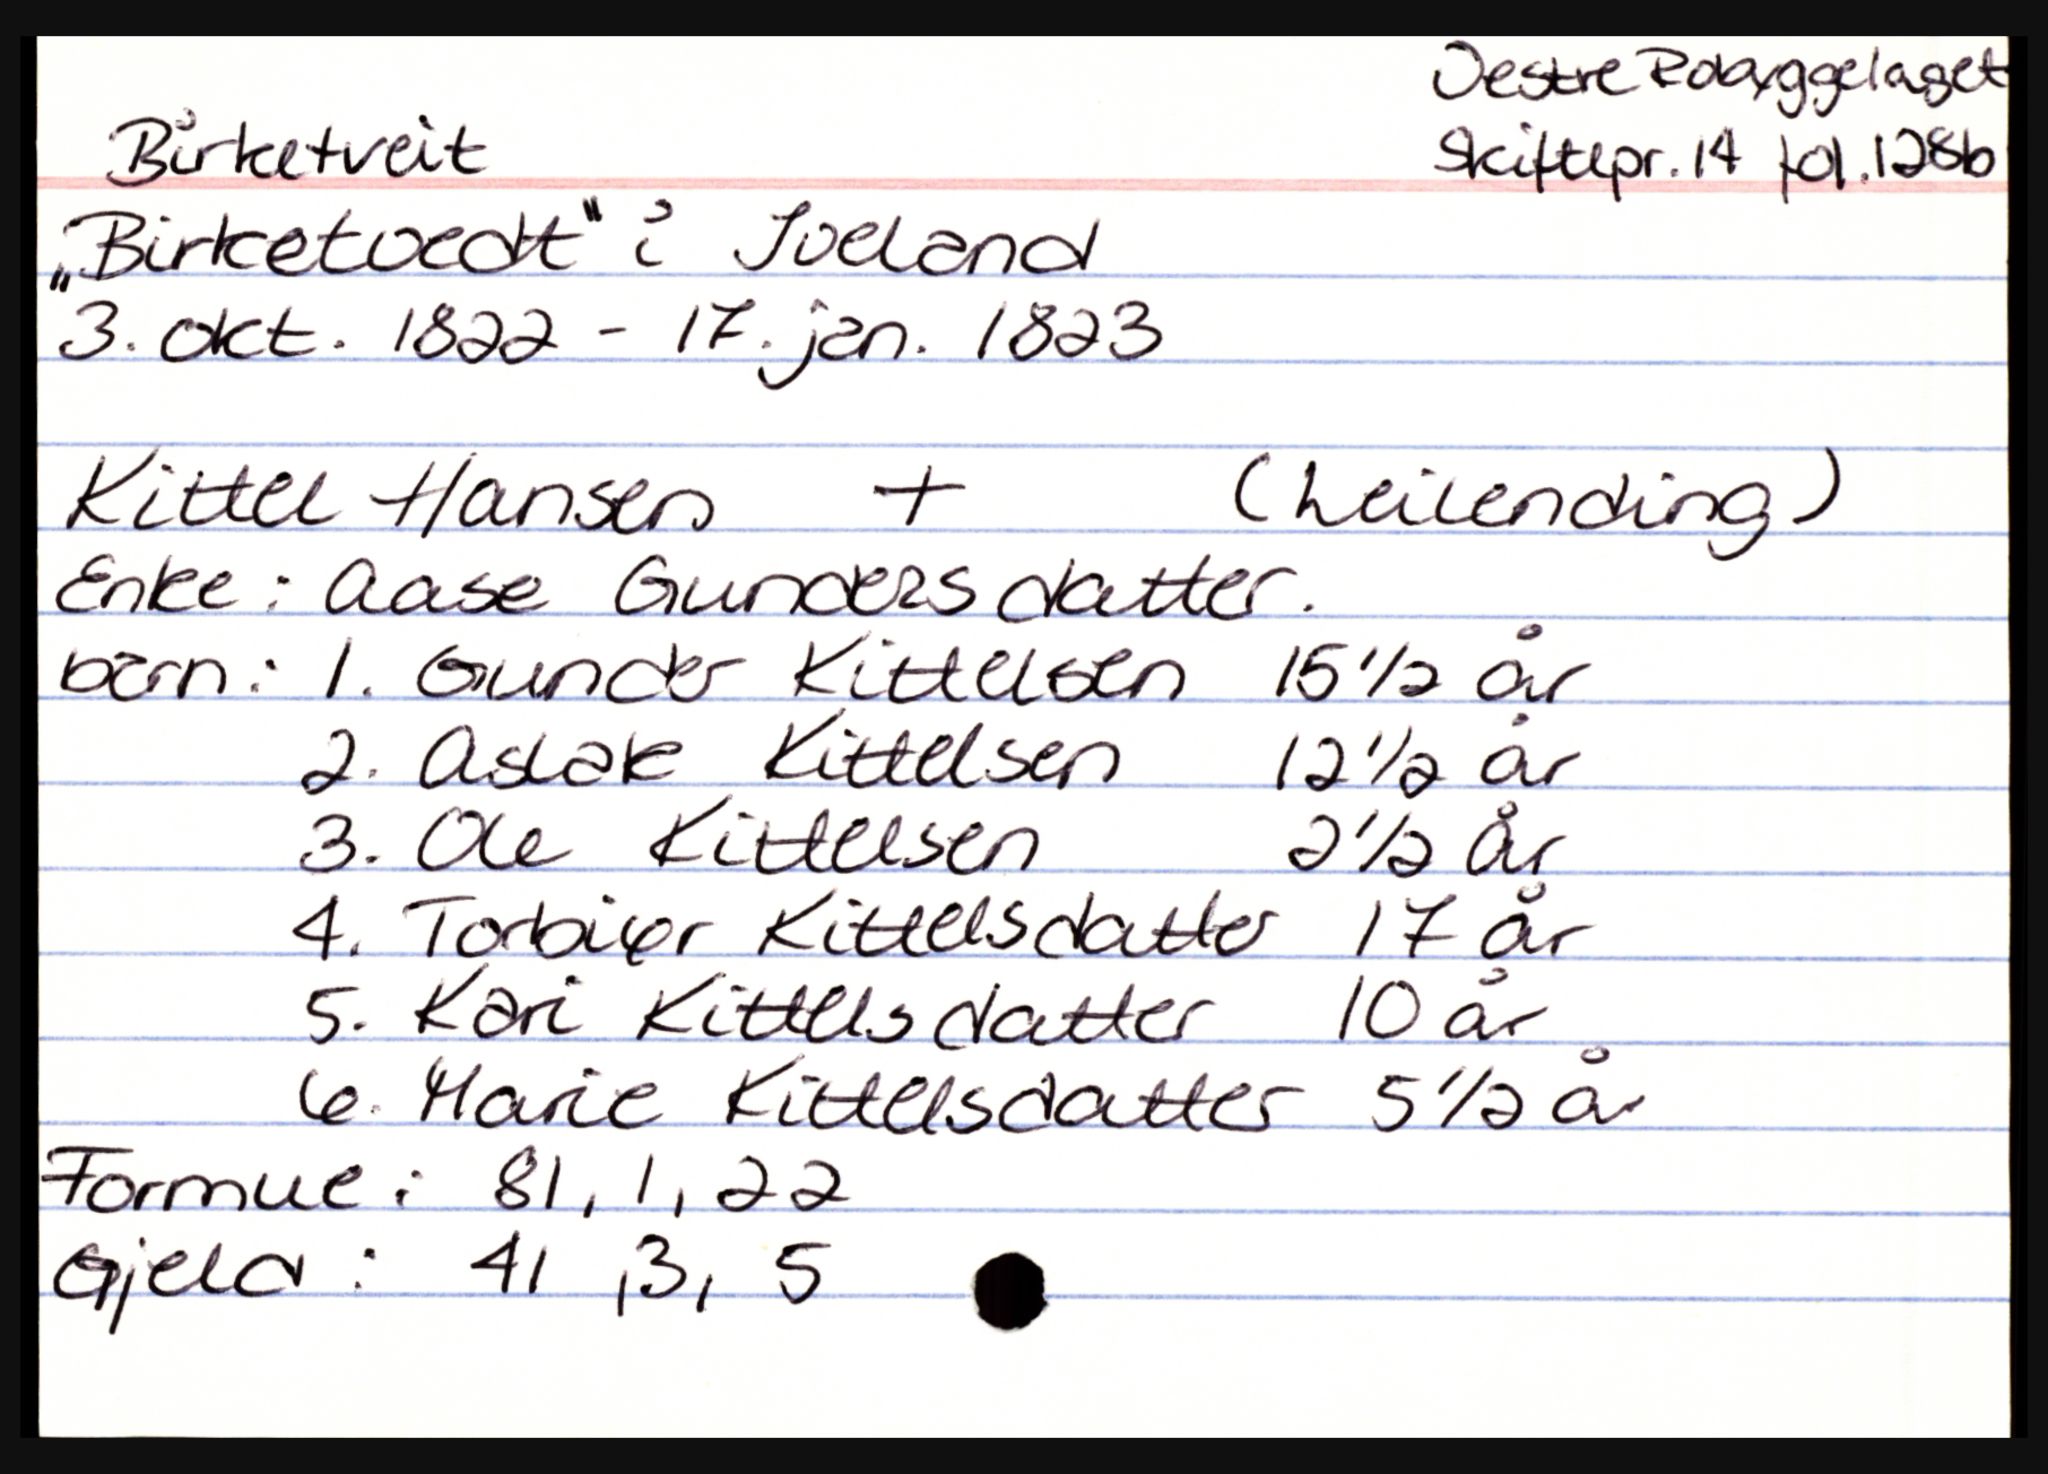 Vestre Robyggelaget
Birketveit
Skiftepr. 14 fol. 128b
„Birketvedt" i Iveland
3. okt. 1822 - 17. jan. 1823
Kittel Hansen + (Leilending)
Enke: Aase Gundersdatter.
barn: 1. Gunder Kittelsen 15 1/2 år
2. Aslak Kittelsen 12 1/2 år
3. Ole Kittelsen 2 1/2 år
4. Torbiør Kittelsdatter 17 år
5. Kari Kittelsdatter 10 år
6. Marie Kittelsdatter 5 1/2 år
Formue: 81, 1, 22
Gjeld: 41, 3, 5